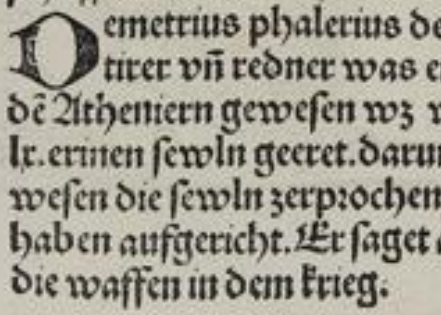 Demetrius phalerius de
tirer vñ redner was e
dē Atheniern gewesen wz
lx. erinen sewln geeret. daru
wesen die sewln zerprochen
haben aufgericht. Er saget
die waffen in dem krieg.